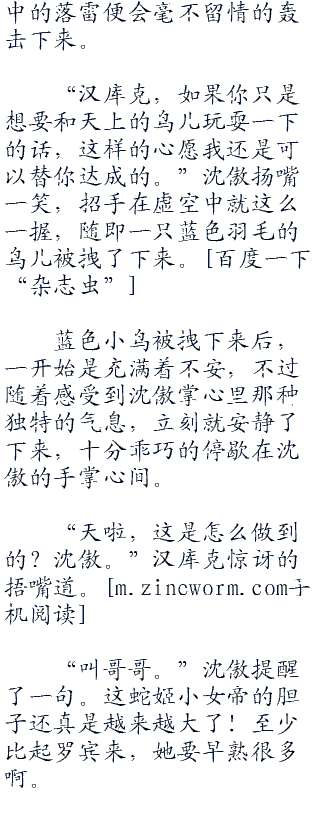 中的落雷便会毫不留情的轰
击下来。
“汉库克，如果你只是
想要和天上的鸟儿玩耍一下
的话，这样的心愿我还是可
以替你达成的。”沈傲扬嘴
一笑，招手在虚空中就这么
一握，随即一只蓝色羽毛的
鸟儿被拽了下来。[百度一下
“杂志虫”]
蓝色小鸟被拽下来后，
一开始是充满着不安，不过
随着感受到沈傲掌心里那种
独特的气息，立刻就安静了
下来，十分乖巧的停歇在沈
傲的手掌心间。
“天啦，这是怎么做到
的？沈傲。”汉库克惊讶的
捂嘴道。[m.zincworm.com手
机阅读]
“叫哥哥。”沈傲提醒
了一句。这蛇姬小女帝的胆
子还真是越来越大了！至少
比起罗宾来，她要早熟很多
啊。